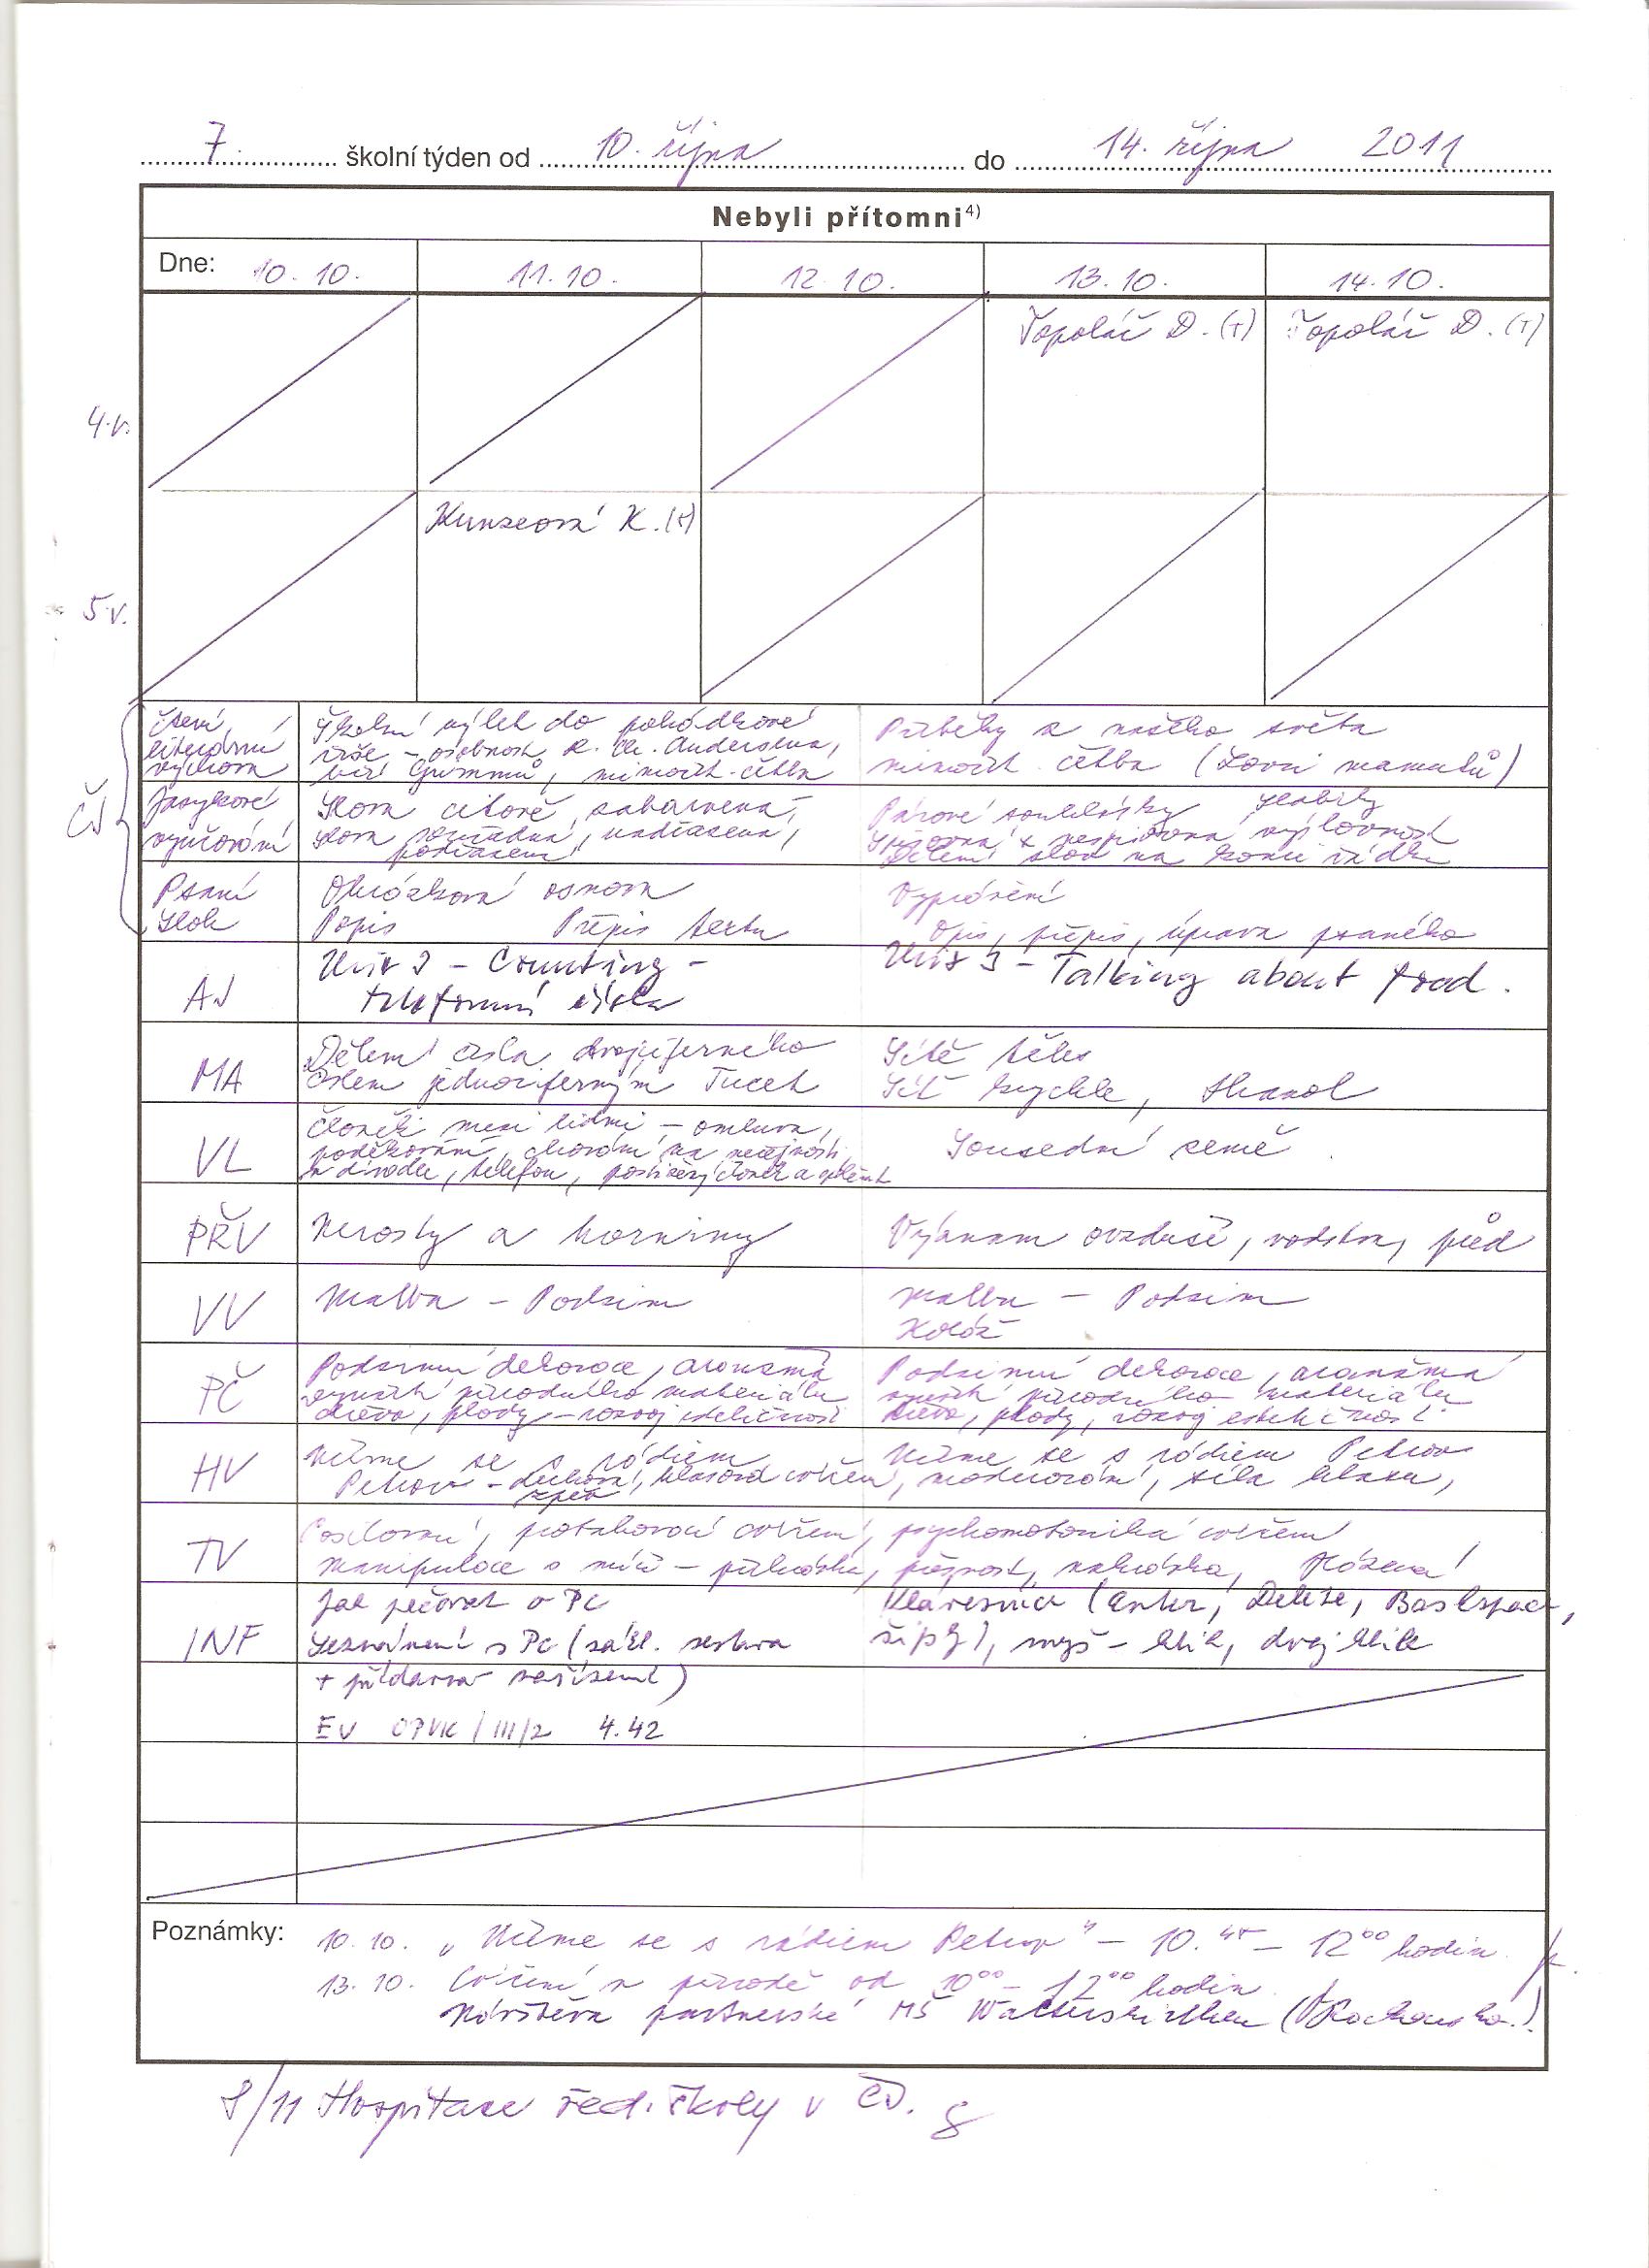 7. školní týden od 10. října do 14. října 2011
Nebyli přítomni4)
Dne: 10. 10. 11. 10. 12. 10. 13. 10. 14. 10.
Topolář D. (T) Topolář D. (T)
4.r.
K. (T)
5.r.
ČJ
čtení
literární
výchova
Školní výlet do pohádkové
říše – osobnost H. Ch. Andersena,
bří Grimmů, mimočít. četba
Příběhy z našeho světa
mimočít. četba (Lovci mamutů)
Jazykové
vyučování
Slova citově zabarvená,
slova souřadná, nadřazená,
podřazená
Párové souhlásky slabiky
Spisovná x nespisovná výslovnost
Dělení slov na konci řádku
Psaní
Sloh
Obrázková osnova
Popis Přepis textu
Vyprávění
Opis, přepis, úprava psaného
AJ
Unit 3 – Counting –
telefonní čísla
Unit 3 – Talking about food.
MA
Dělení čísla dvojciferného
číslem jednociferným Tucet
Sítě těles
Síť krychle, kvádr
VL
Člověk mezi lidmi – omluva,
poděkování, chování na veřejnosti,
v divadle, telefon, postižený člověk a
Sousední země
PŘV
Nerosty a horniny
Význam ovzduší, vodstva, půd
VV
Malba – Podzim
Malba – Podzim
Koláž
PČ
Podzimní dekorace, aranžmá
využití přírodního materiálu
dřevo, plody – rozvoj estetičnosti
Podzimní dekorace, aranžmá
využití přírodního materiálu
dřevo, plody, rozvoj estetičnosti
HV
Učíme se s rádiem
Petrov – dechová, hlasová cvičení,
zpěv
Učíme se s rádiem Petrov
moderování, síla hlasu,
TV
Posilovací, protahovací cvičení, psychomotorická cvičení
Manipulace s míči – přihrávka, přesnost, nahrávka,
INF
Jak pečovat o PC
Seznámení s PC (zákl. sestava
+ přídavná zařízení)
Klávesnice (Enter, Delete, Backspace,
šipky), myš – klik, dvojklik
EV OPVK/III/2 4.42
Poznámky:
10. 10. „Učíme se s rádiem Petrov“ – 10.45 – 12 00 hodin
13. 10. Cvičení v přírodě od 10 00 – 12 00 hodin
Návštěva partnerské MŠ Walterskirchen
8/11 Hospitace řed. školy v ČJ.